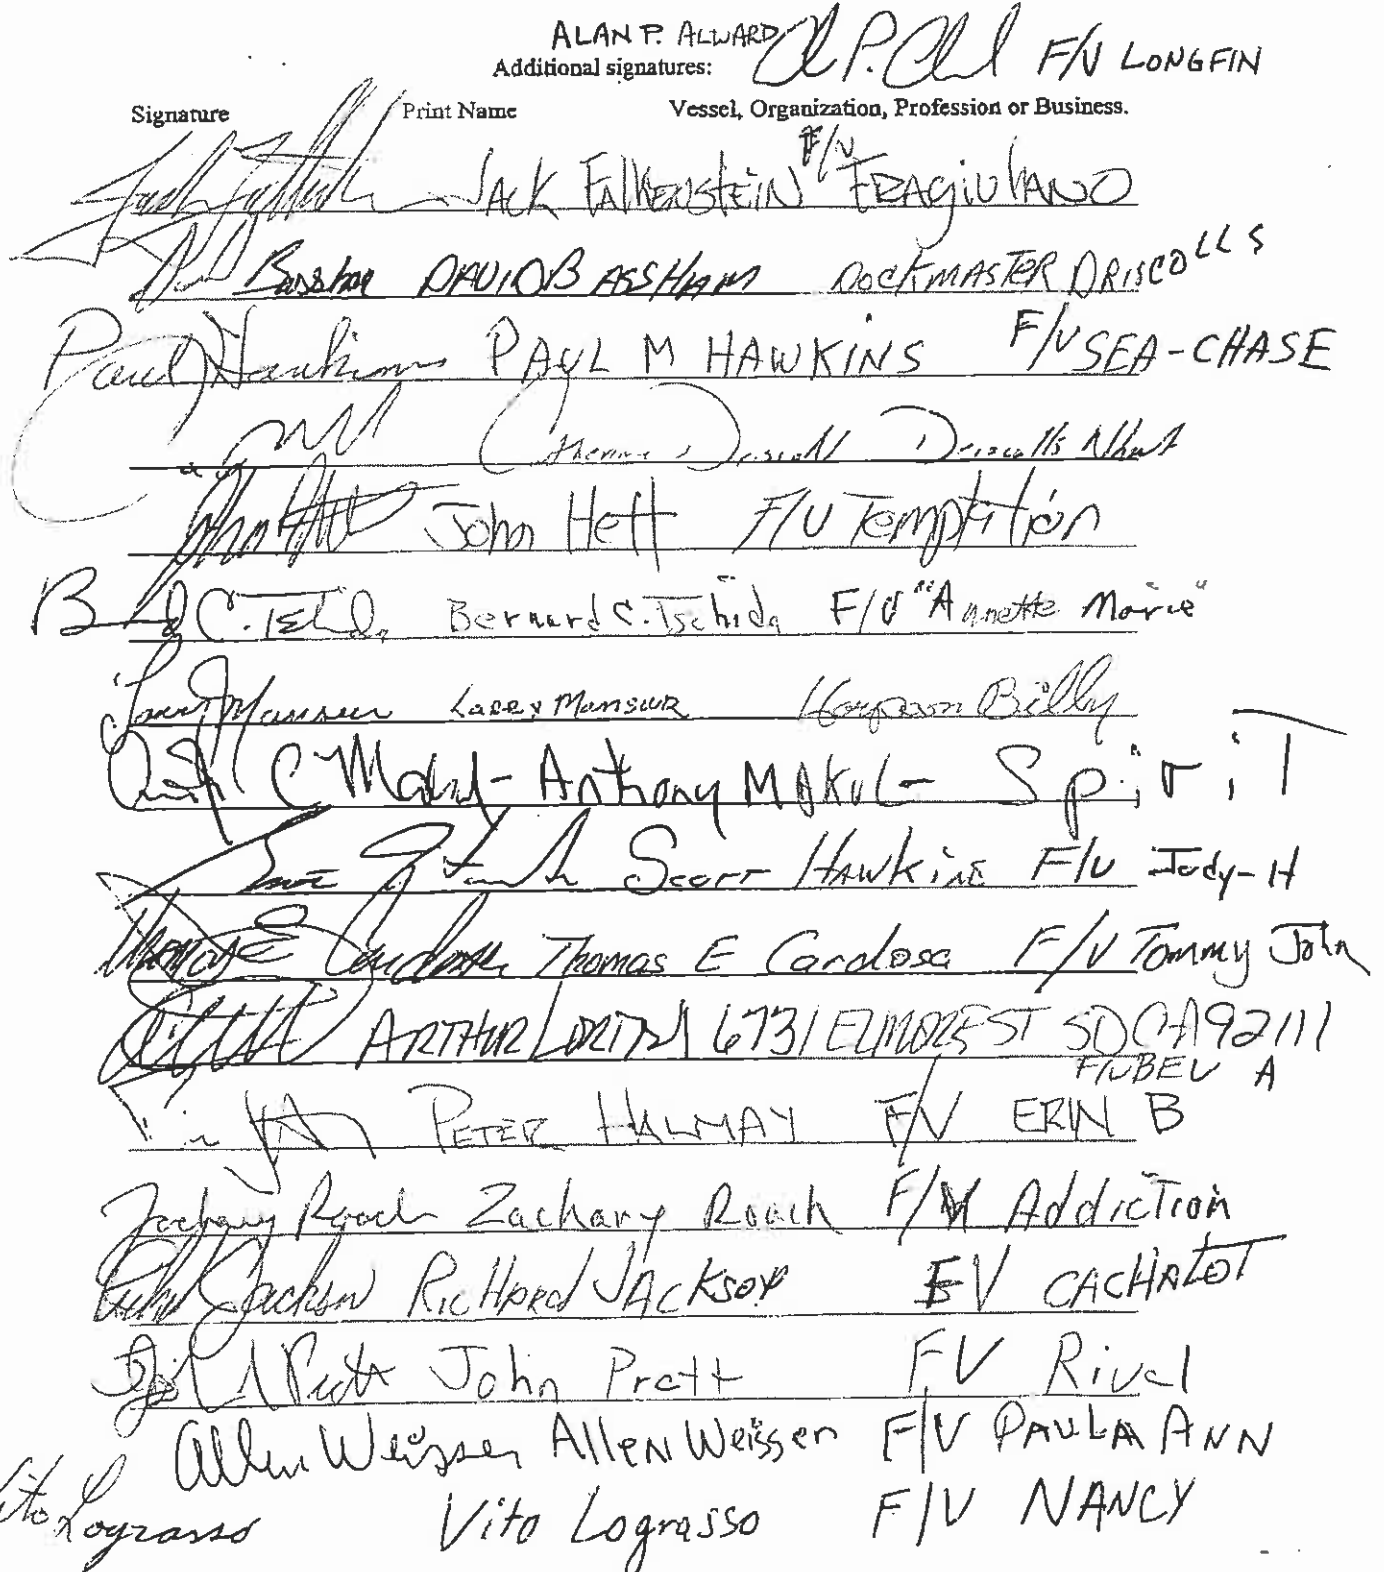 ALAN P. ALWARD
Additional signatures: F/V LONGFIN
Signature Print Name Vessel, Organization, Profession or Business.
JACK FALKENSTEIN F/V FRAGIULIANO
Bassham DAVID BASSHAM DOCKMASTER DRISCOLLS
Paul Hawkins PAUL M HAWKINS F/V SEA-CHASE
Catherine Driscoll Driscolls Wharf
John Hett John Hett F/V Temptation
B C. Bernard C. Tschida F/V "Annette Marie"
Larry Mansur Larry Mansur Billy
C Makul - Anthony MAKUL - SpiriT
Scott Hawkins F/V Jody-H
Thomas E Cardosa Thomas E Cardosa F/V Tommy John
ARTHUR 6731 ELMORE ST SD CA 92111
F/V BEV A
PETER HALMAY F/V ERIN B
Zachary Roach Zachary Roach F/V Addiction
Jackson Richard Jackson FV CACHALOT
Pratt John Pratt FV Rival
Allen Weissen Allen Weissen F/V PAULA ANN
Vito Lograsso Vito Lograsso F/V NANCY